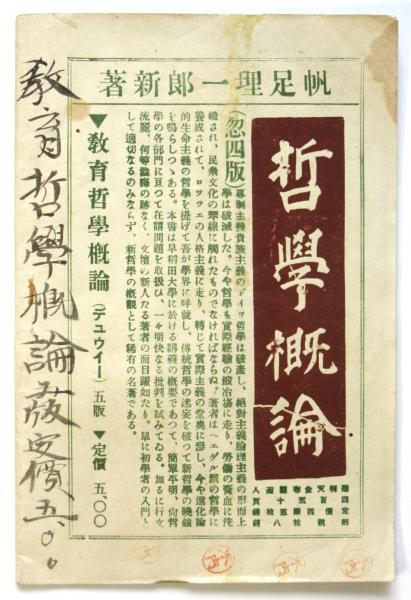 帆足理一郎新著
哲學概論
忽四版
專制主義貴族主義のドイツ哲學は破産し、絶對主義論理主義の形而上
學は破滅した。今や哲學も實際經驗の鍛冶場に走り、勞働の膏血に洗
禮され、民衆文化の琴線に觸れたものでなければならぬ。著者はヘエゲル派の哲學に
養成されて、ロッツェの人格主義に走り、轉じて實際主義の堂奧に參し、今や進化論
的生命主義の哲學を提げて吾が學界に呼號し、傳統哲學の迷妄を破つて新哲學の曉鐘
を鳴らしつゝある。本書は早稻田大學に於ける講義の概要であつて、簡單平明、尙哲
學の各部門に亘つて在謂問題を取扱ひ、一々明快なる批判を試みてゐる。加るに行文
流麗、何等澁晦の跡なく、文壇の新人たる著者の面目躍如たり。單に初學者の入門と
して適切なるのみならず、新哲學の概觀として稀有の名著である。
▼教育哲學概論(デュウイー)五版▼定價 五、〇〇
教育哲學概論 五、〇〇